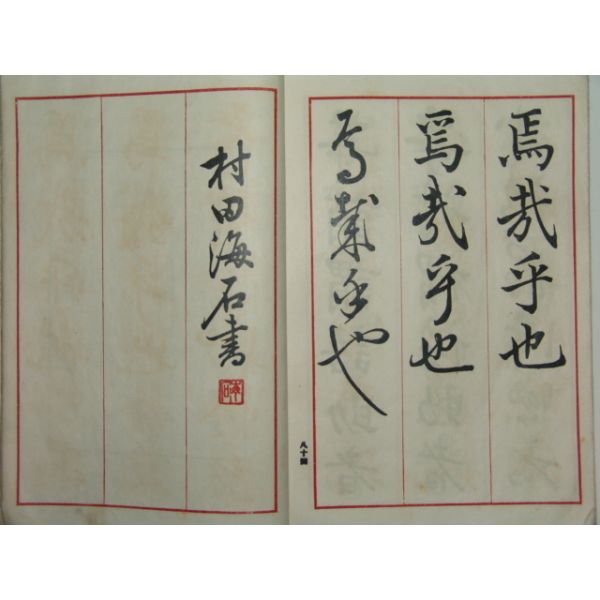 焉哉乎也
焉哉乎也
焉哉乎也
八十四
村田海石書